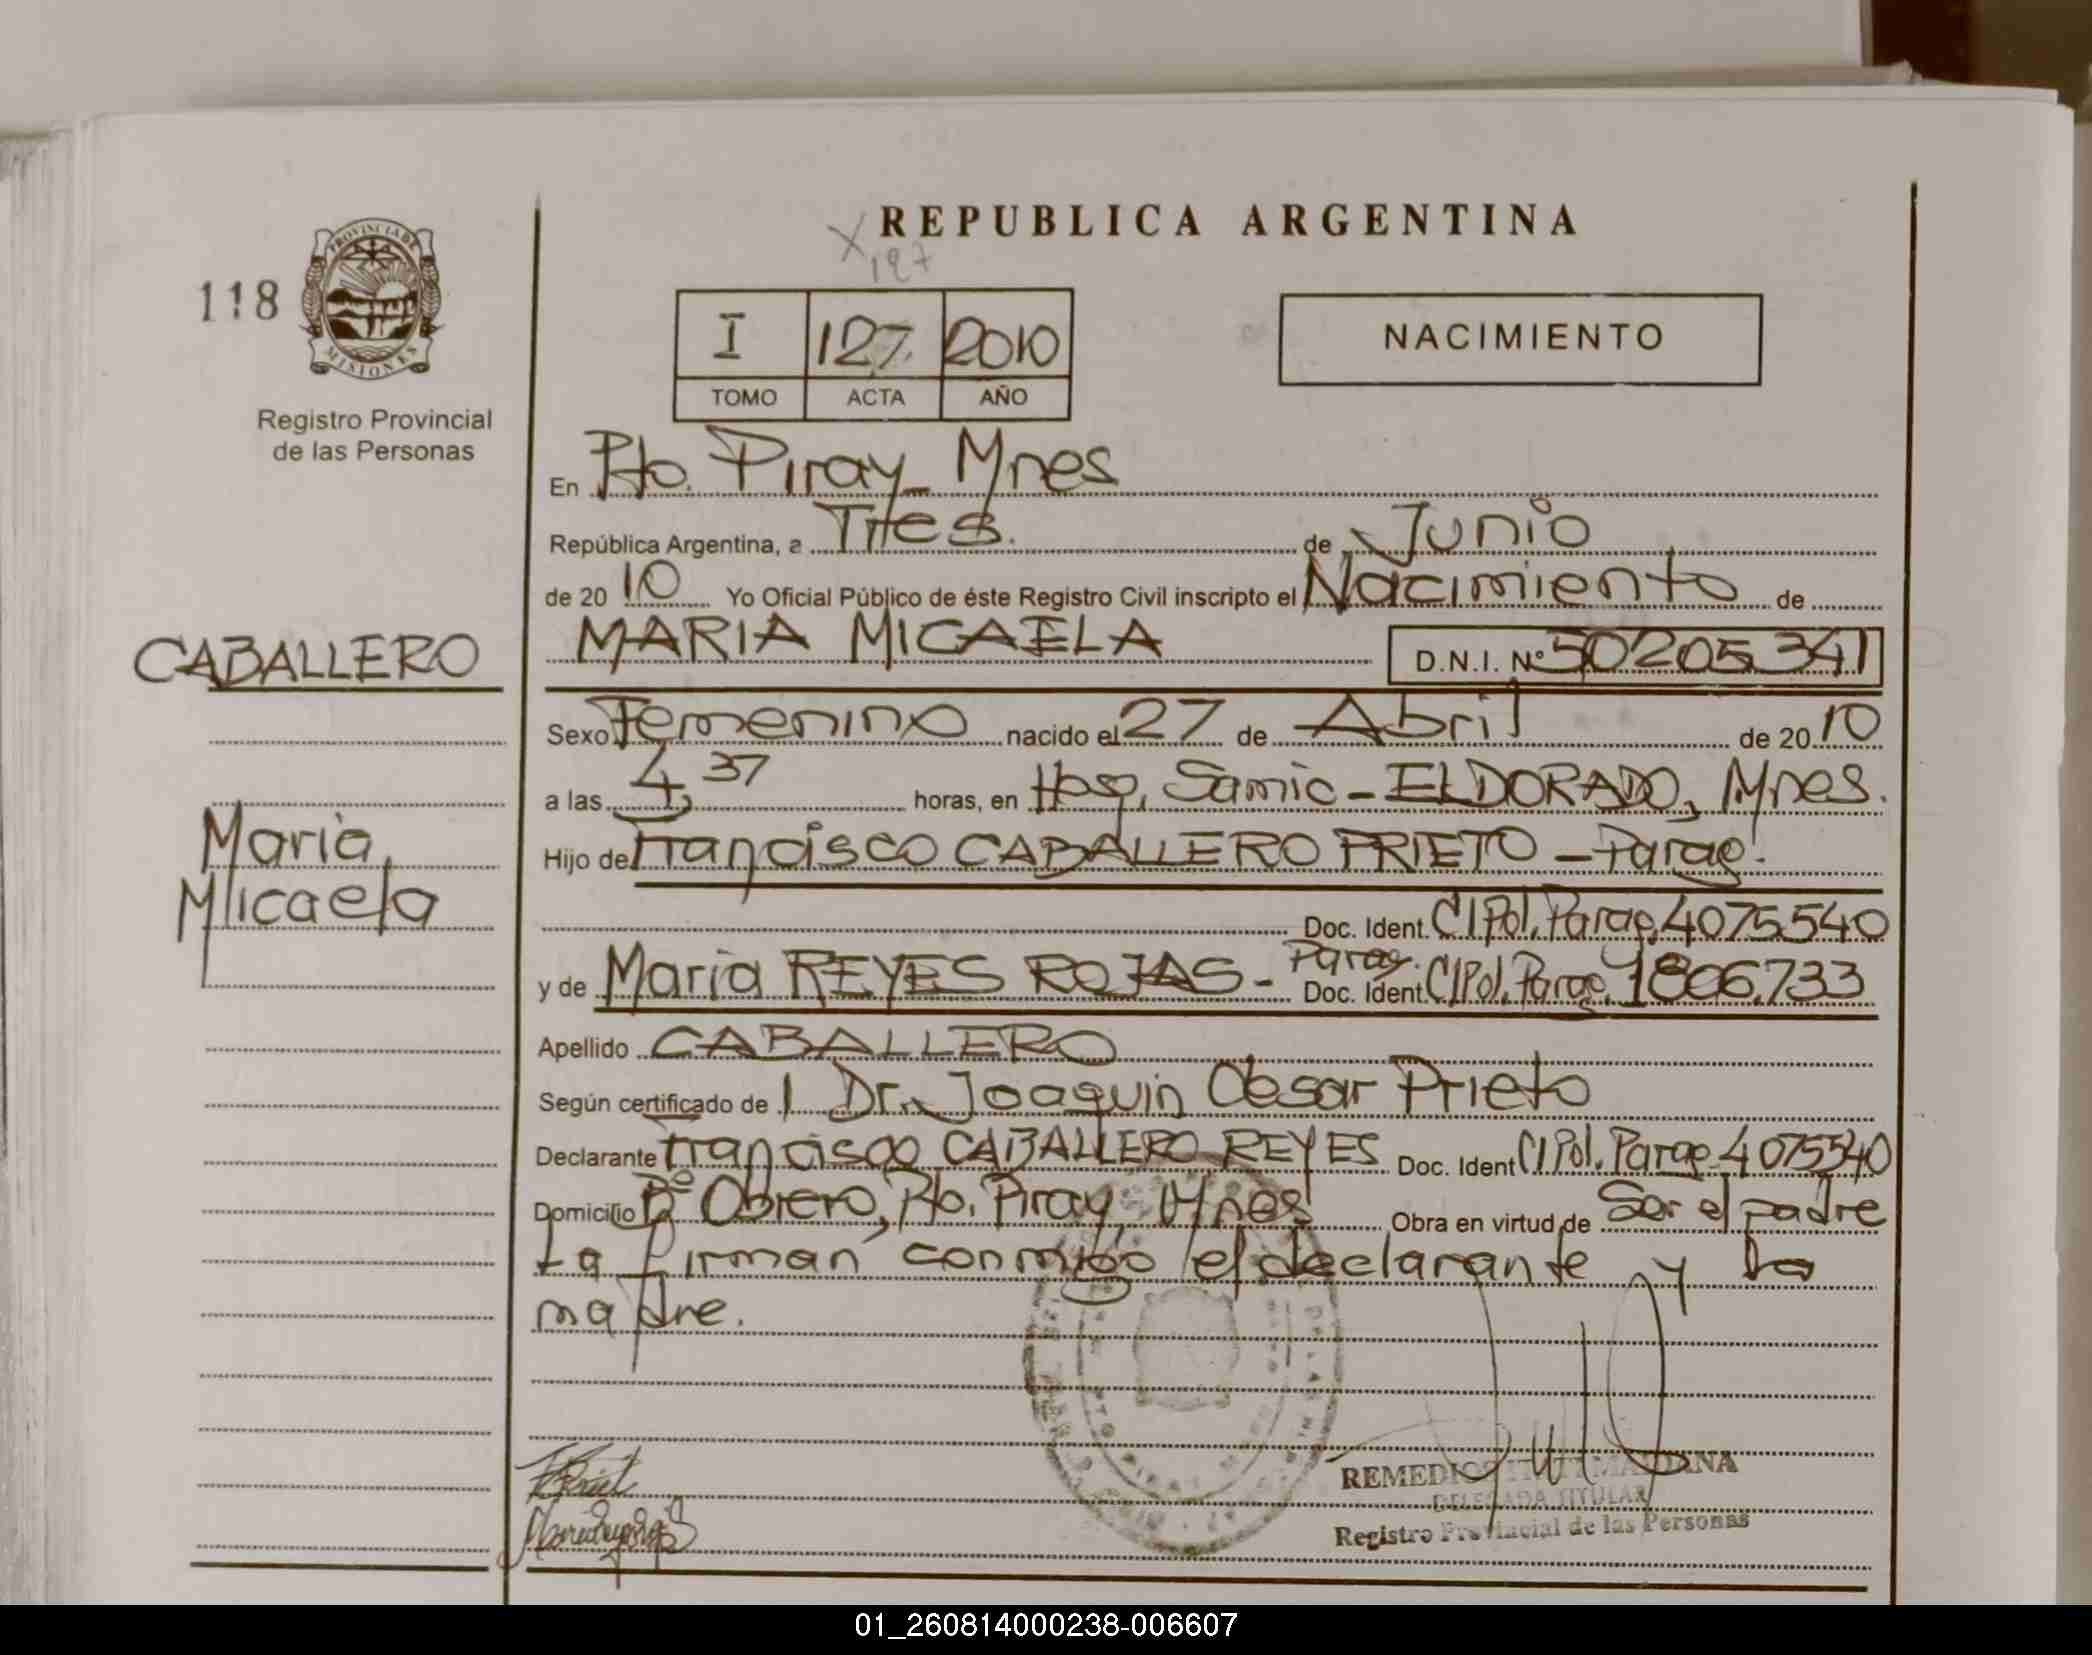 REPUBLICA ARGENTINA
X 127
118
PROVINCIA DE
MISIONES
Registro Provincial
de las Personas
I 127 2010
TOMO ACTA AÑO
NACIMIENTO
En Pto. Piray - Mnes
República Argentina, a Tres. de Junio
de 2010 Yo Oficial Público de éste Registro Civil inscripto el Nacimiento de
CABALLERO
MARIA MICAELA D.N.I. Nº 50205341
Sexo Femenino nacido el 27 de Abril de 2010
a las 4,37 horas, en Hosp. Samic - ELDORADO, Mnes.
Maria
Micaela
Hijo de Francisco CABALLERO PRIETO - Parag.
Doc. Ident. CI Pol. Parag. 4075540
y de Maria REYES ROJAS - Parag. Doc. Ident. CI Pol. Parag. 1806.733
Apellido CABALLERO
Según certificado de l Dr. Joaquin Cesar Prieto
Declarante Francisco CABALLERO REYES Doc. Ident CI Pol. Parag. 4075540
Domicilio Bº Obrero, Pto. Piray, Mnes Obra en virtud de Ser el padre
La firman conmigo el declarante y la
madre.
REMEDIOS
DELEGADA TITULAR
Registro Provincial de las Personas
01_260814000238-006607